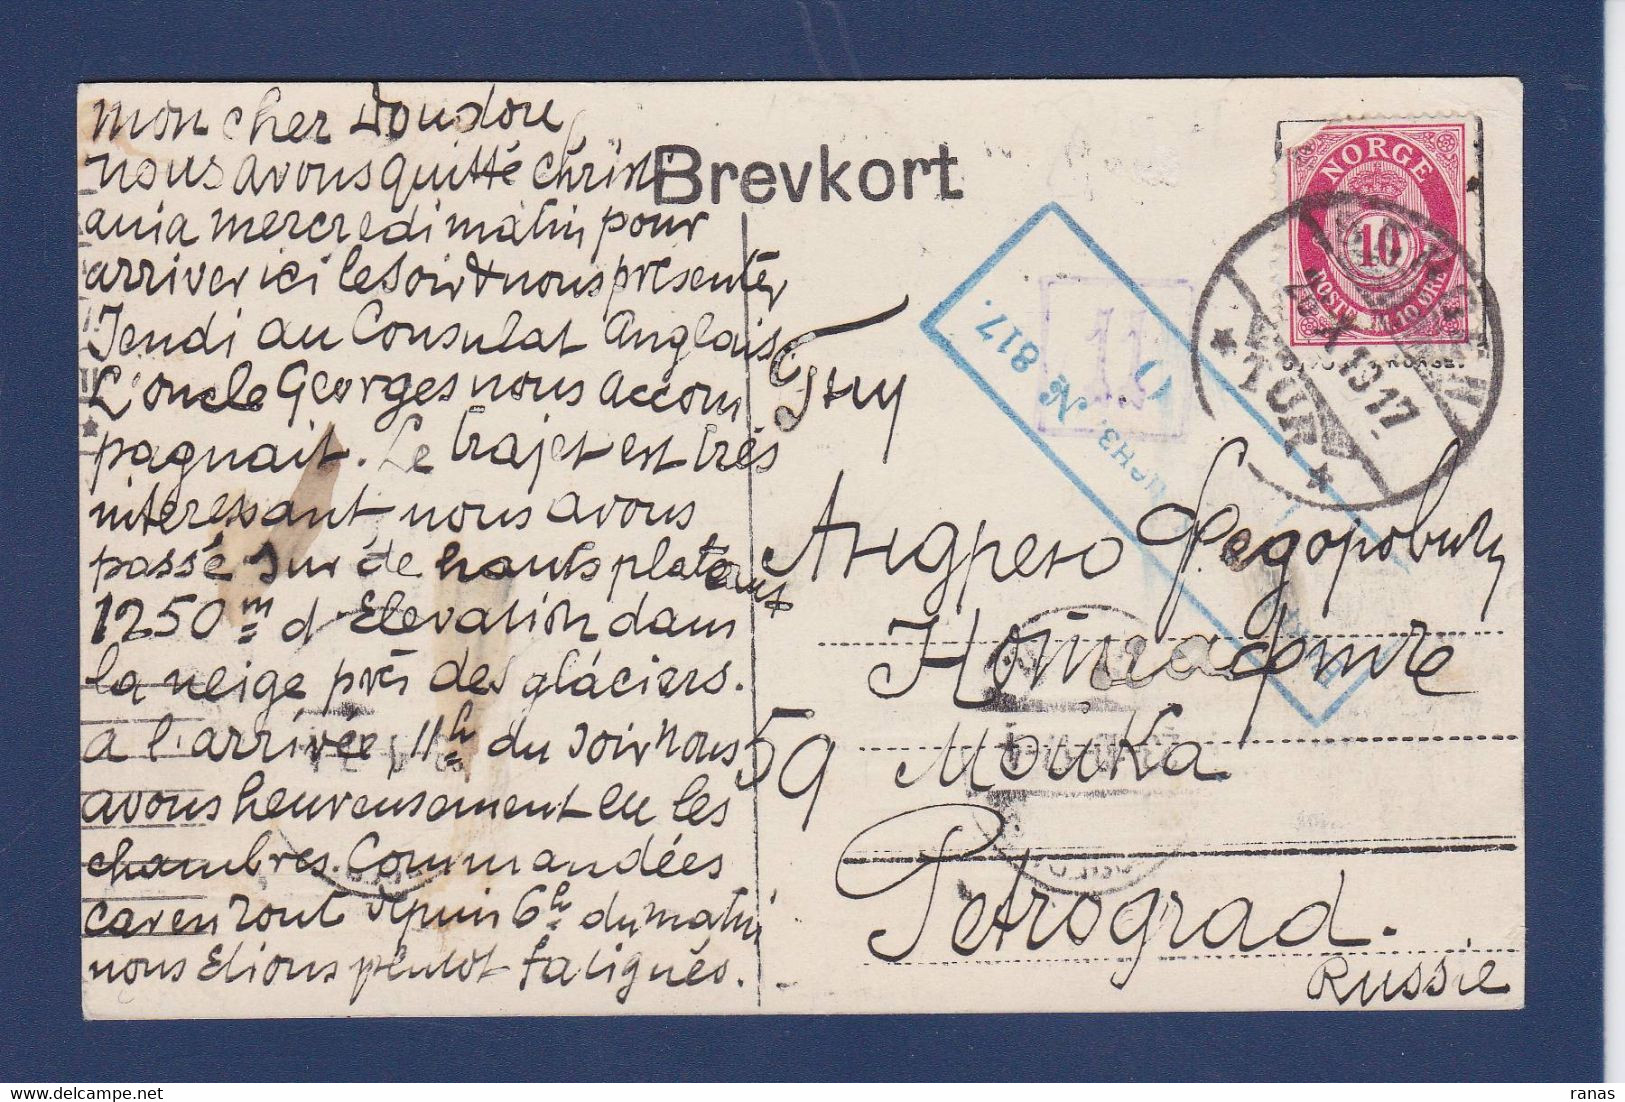 Mon cher Doudou
nous avons quitté Christi
ania mercredi matin pour
arriver ici le soir & nous présenter
Jeudi au Consulat Anglais
L'oncle Georges nous accom
pagnait. Le trajet est très
interessant nous avons
passé sur de hauts plateaux
1250 m d'Elevation dans
la neige près des glaciers.
a l'arrivée, 11h du soir nous
avons heureusement eu les
chambres Commandées
car en route depuis 6h du matin
nous etions plutot fatigués.
Brevkort
NORGE
10
№ 817.
TUR
19 17
Андрею Федоровичу
59 Мойка
Petrograd.
Russie
ranas